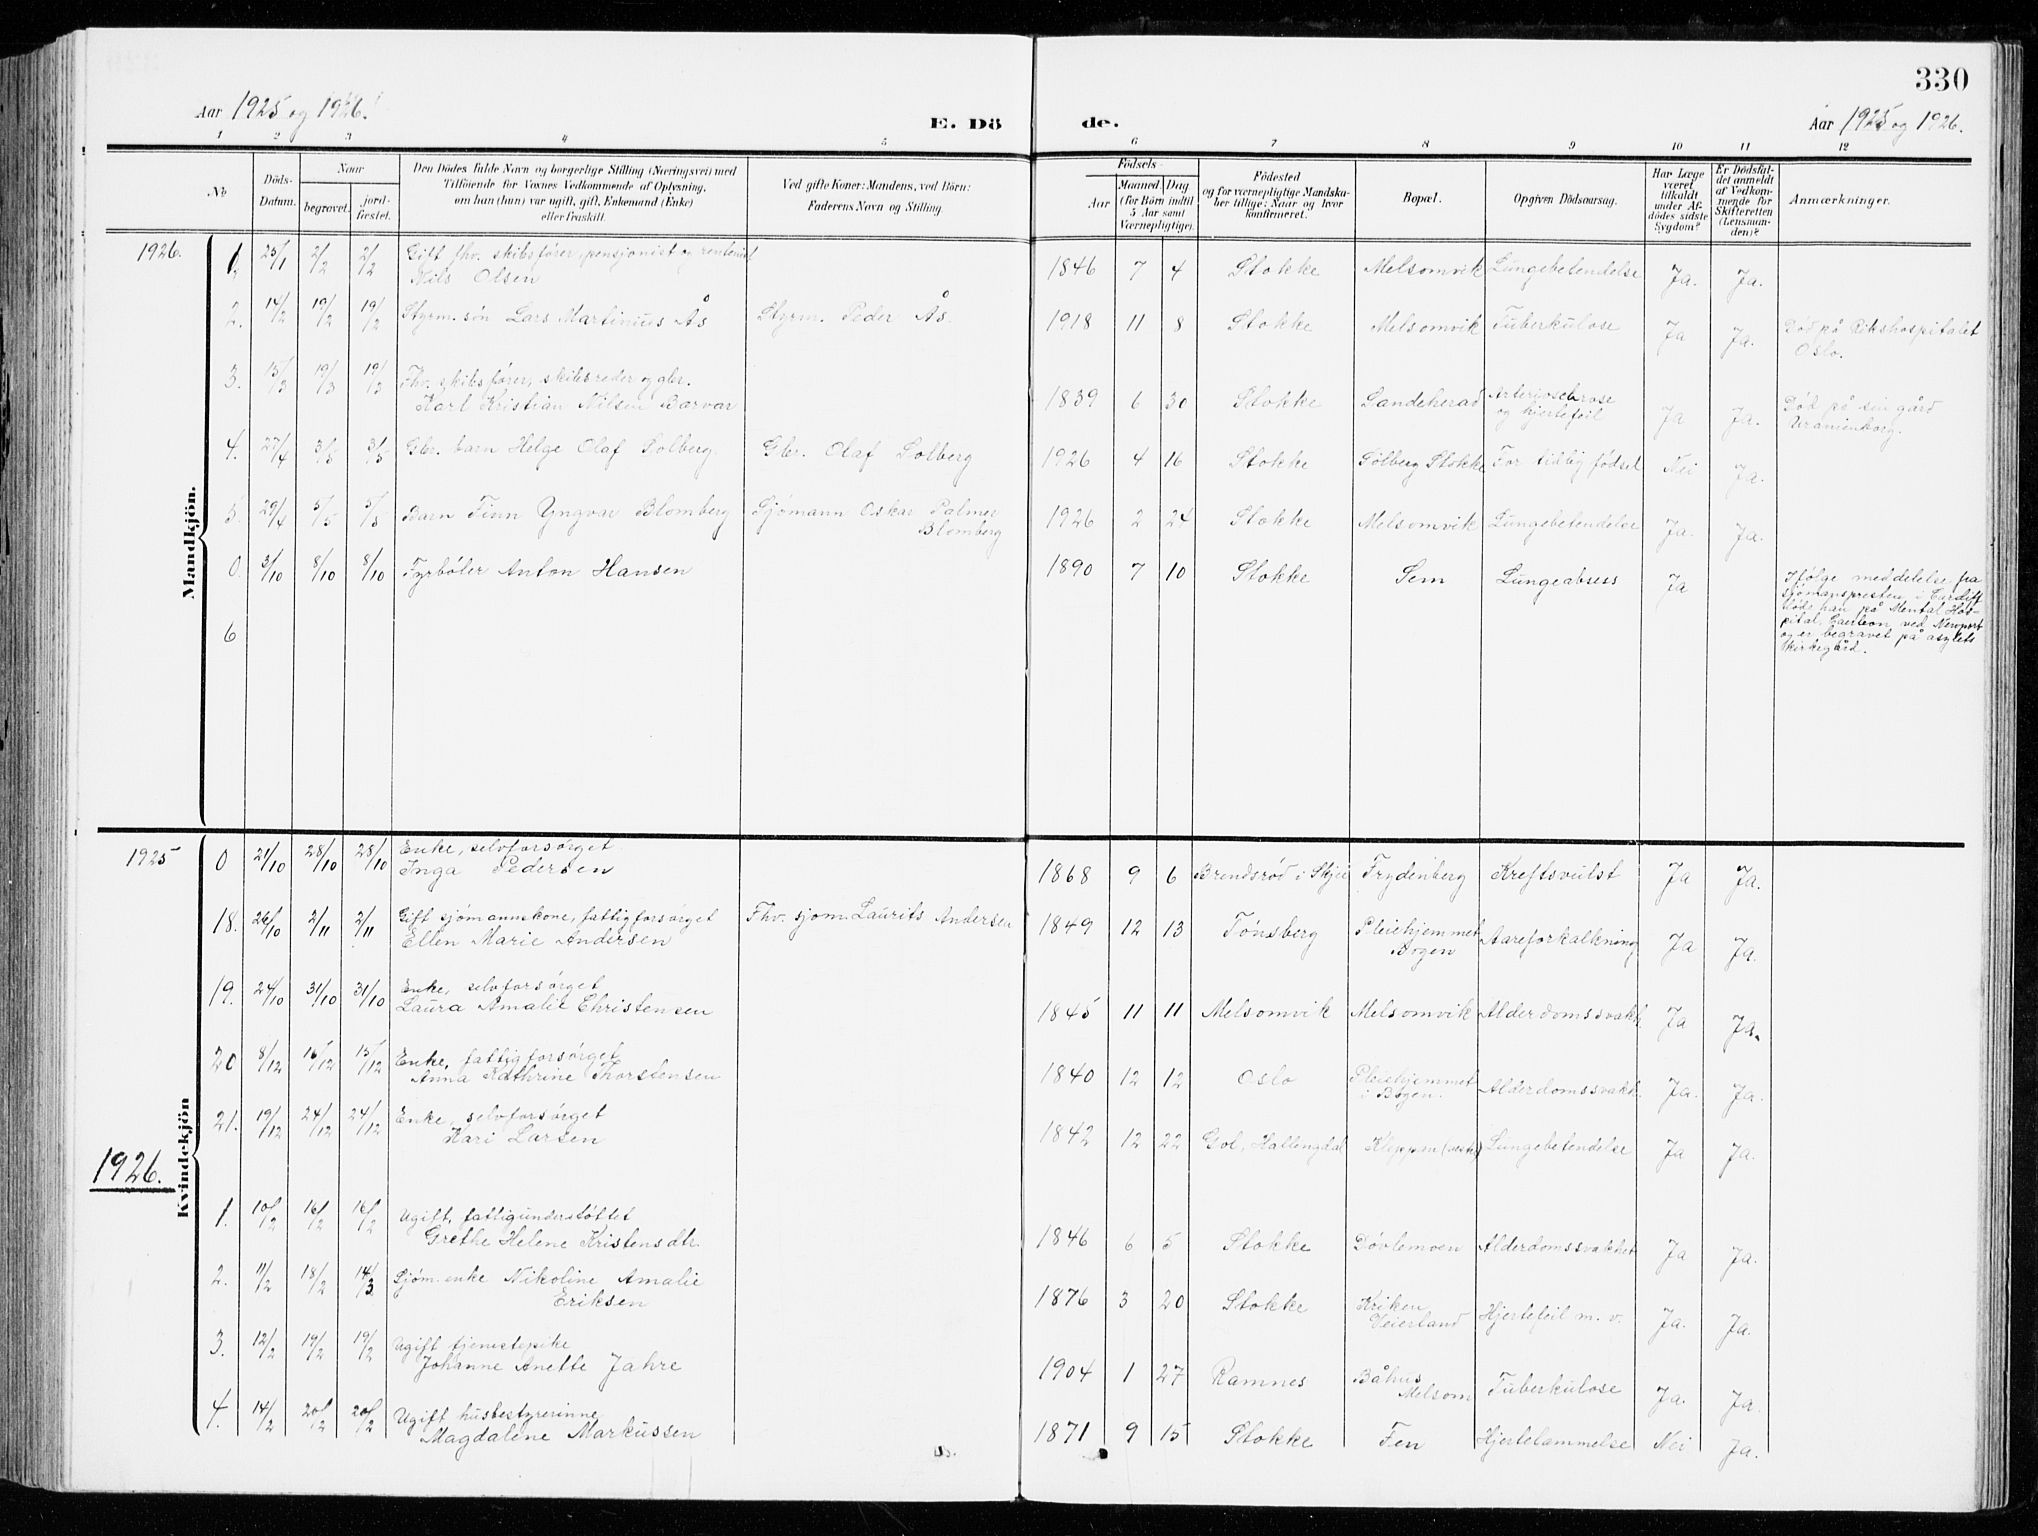 330
Aar 1925 og 1926.
E. Dö de.
Aar 1925 og 1926.
1 2 3 4 5 6 7 8 9 10 11 12
No
Döds-Datum.
Naar
begravet.
jord-fæstet.
Den Dödes fulde Navn og borgerlige Stilling (Næringsvei) med
Tilföiende for Voxnes Vedkommende af Oplysning,
om han (hun) var ugift, gift, Enkemand (Enke)
eller fraskilt.
Ved gifte Koner: Mandens, ved Börn:
Faderens Navn og Stilling.
Födsels-
Aar
Maaned Dag
(for Börn indtil
5 Aar samt
Værnepligtige).
Födested
og for værnepligtige Mandska-
ber tillige: Naar og hvor
konfirmeret.
Bopæl.
Opgiven Dödsaarsag.
Har Læge
været
tilkaldt
under Af-
dödes sidste
Sygdom?
Er Dödsfal-
det anmeldt
af Vedkom-
mende for
Skifteretten
(Lensman-
den)?
Anmærkninger.
Mandkjön.
1926.
1. 25/1 2/2 2/2 Gift fhv. skibsfører, pensjonist og rentenist
Nils Olsen 1846 7 4 Stokke Melsomvik Lungebetendelse Ja. Ja.
2. 14/2 19/2 19/2 Styrm. søn Lars Martinius Ås Styrm. Peder Ås. 1918 11 8 Stokke Melsomvik Tuberkulose Ja Ja. Død på Rikshospitalet
Oslo.
3. 15/3 19/3 19/3 Fhv. skibsfører, skibsreder og gbr.
Karl Kristian Nilsen Barvar 1839 6 30 Stokke Sandeherad Arteriosclerose
og hjertefeil Ja Ja. Død på sin gård
Uranienborg.
4. 27/4 3/5 3/5 Gbr. barn Helge Olaf Solberg. Gbr. Olaf Solberg 1926 4 16 Stokke Solberg Stokke For tidlig fødsel Nei Ja.
5. 29/4 5/5 5/5 Barn Finn Yngvar Blomberg Sjømann Oskar Palmer
Blomberg 1926 2 24 Stokke Melsomvik Lungebetendelse Ja. Ja.
0. 3/10 8/10 8/10 Fyrbøter Anton Hansen 1890 7 10 Stokke Sem Lungeabsess Ja Ifølge meddelelse fra
sjømanspresten i Cardiff
døde han på Mental Hos-
pital, Caerleon ved Newport
og er begravet på asylets
kirkegård.
6
Kvindekjön
1925
0 21/10 28/10 28/10 Enke, selvforsørget.
Inga Pedersen 1868 9 6 Brendsrød i Skjee Frydenberg Kreftsvulst Ja Ja.
18. 26/10 2/11 2/11 Gift sjømannskone, fattigforsørget
Ellen Marie Andersen Fhv. sjøm. Laurits Andersen 1849 12 13 Tønsberg Pleiehjemmet
Bogen Aareforkalkning Ja Ja.
19. 24/10 31/10 31/10 Enke, selvforsørget
Laura Amalie Christensen 1845 11 11 Melsomvik Melsomvik Alderdomssvakh. Ja Ja.
20 8/12 16/12 15/12 Enke, fattigforsørget
Anna Kathrine Thorstensen 1840 12 12 Oslo Pleiehjemmet
i Bogen. Alderdomssvakh. Ja. Ja.
21. 19/12 24/12 24/12 Enke, selvforsørget
Kari Larsen 1842 12 22 Gol, Hallingdal Kleppan (vestr.) Lungebetendelse Ja Ja.
1926.
1. 10/2 16/2 16/2 Ugift, fattigunderstøttet
Grethe Helene Kristensdtr. 1846 6 5 Stokke Døvlemoen Alderdomssvakhet Ja Ja.
2. 11/2 18/2 14/3 Sjøm. enke Nikoline Amalie
Eriksen 1876 3 20 Stokke Kriken
Veierland Hjertefeil m. v. Ja. Ja.
3. 12/2 19/2 19/2 Ugift tjenestepike
Johanne Anette Jahre 1904 1 27 Ramnes Båhus
Melsom Tuberkulose Ja. Ja.
4. 14/2 20/2 20/2 Ugift husbestyrerinne
Magdalene Markussen 1871 9 15 Stokke Fen Hjertelammelse Nei Ja.